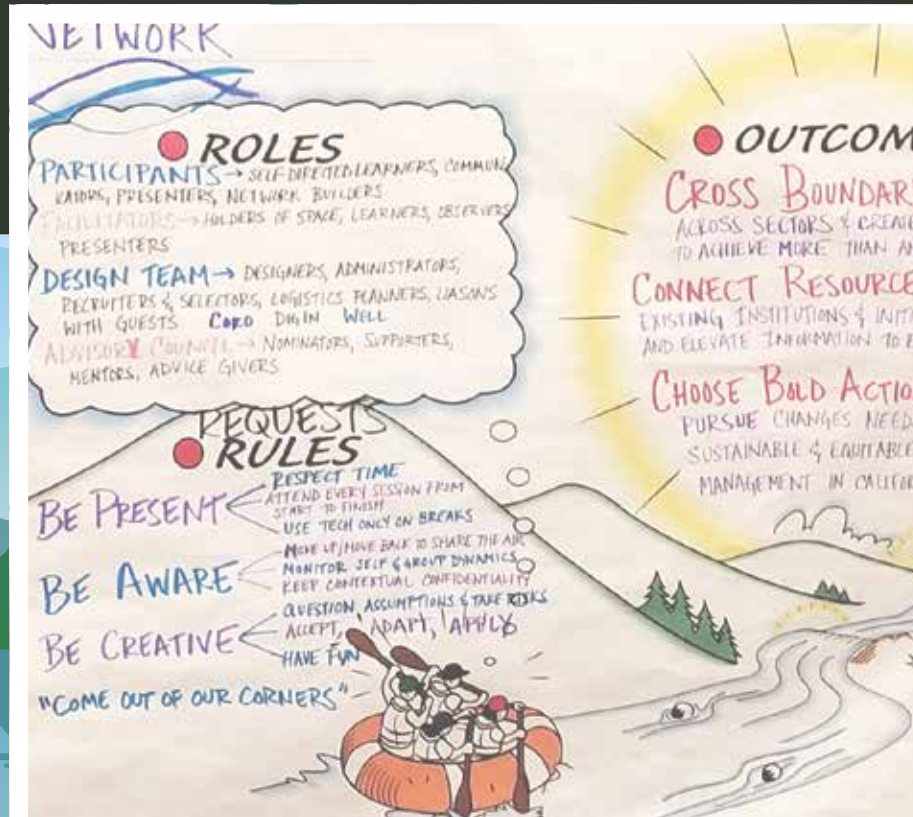 NETWORK
ROLES
PARTICIPANTS → SELF DIRECTED LEARNERS, COMMUNI
CATORS, PRESENTERS, NETWORK BUILDERS
FACILITATORS → HOLDERS OF SPACE, LEARNERS, OBSERVERS
PRESENTERS
DESIGN TEAM → DESIGNERS, ADMINISTRATORS,
RECRUITERS & SELECTORS, LOGISTICS PLANNERS, LIASONS
WITH GUESTS CORO DIGIN WELL
ADVISORY COUNCIL → NOMINATORS, SUPPORTERS,
MENTORS, ADVICE GIVERS
REQUESTS
RULES
BE PRESENT
RESPECT TIME
ATTEND EVERY SESSION FROM
START TO FINISH
USE TECH ONLY ON BREAKS
BE AWARE
MOVE UP/MOVE BACK TO SHARE THE AIR
MONITOR SELF & GROUP DYNAMICS
KEEP CONTEXTUAL CONFIDENTIALITY
BE CREATIVE
QUESTION ASSUMPTIONS & TAKE RISKS
ACCEPT, ADAPT, APPLY
HAVE FUN
"COME OUT OF OUR CORNERS"
OUTCOM
CROSS BOUNDAR
ACROSS SECTORS & CREATE
TO ACHIEVE MORE THAN AN
CONNECT RESOURCE
EXISTING INSTITUTIONS & INITI
AND ELEVATE INFORMATION TO
CHOOSE BOLD ACTIO
PURSUE CHANGES NEED
SUSTAINABLE & EQUITABLE
MANAGEMENT IN CALIFOR